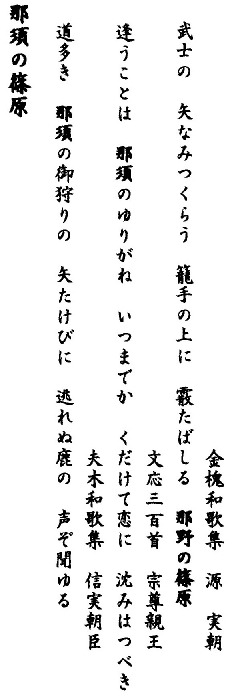 武士の　矢なみつくらう　籠手の上に　霰たばしる　那野の篠原
金槐和歌集　源　実朝
逢うことは　那須のゆりがね　いつまでか　くだけて恋に　沈みはつべき
文応三百首　宗尊親王
道多き　那須の御狩りの　矢たけびに　逃れぬ鹿の　声ぞ聞ゆる
夫木和歌集　信実朝臣
那須の篠原